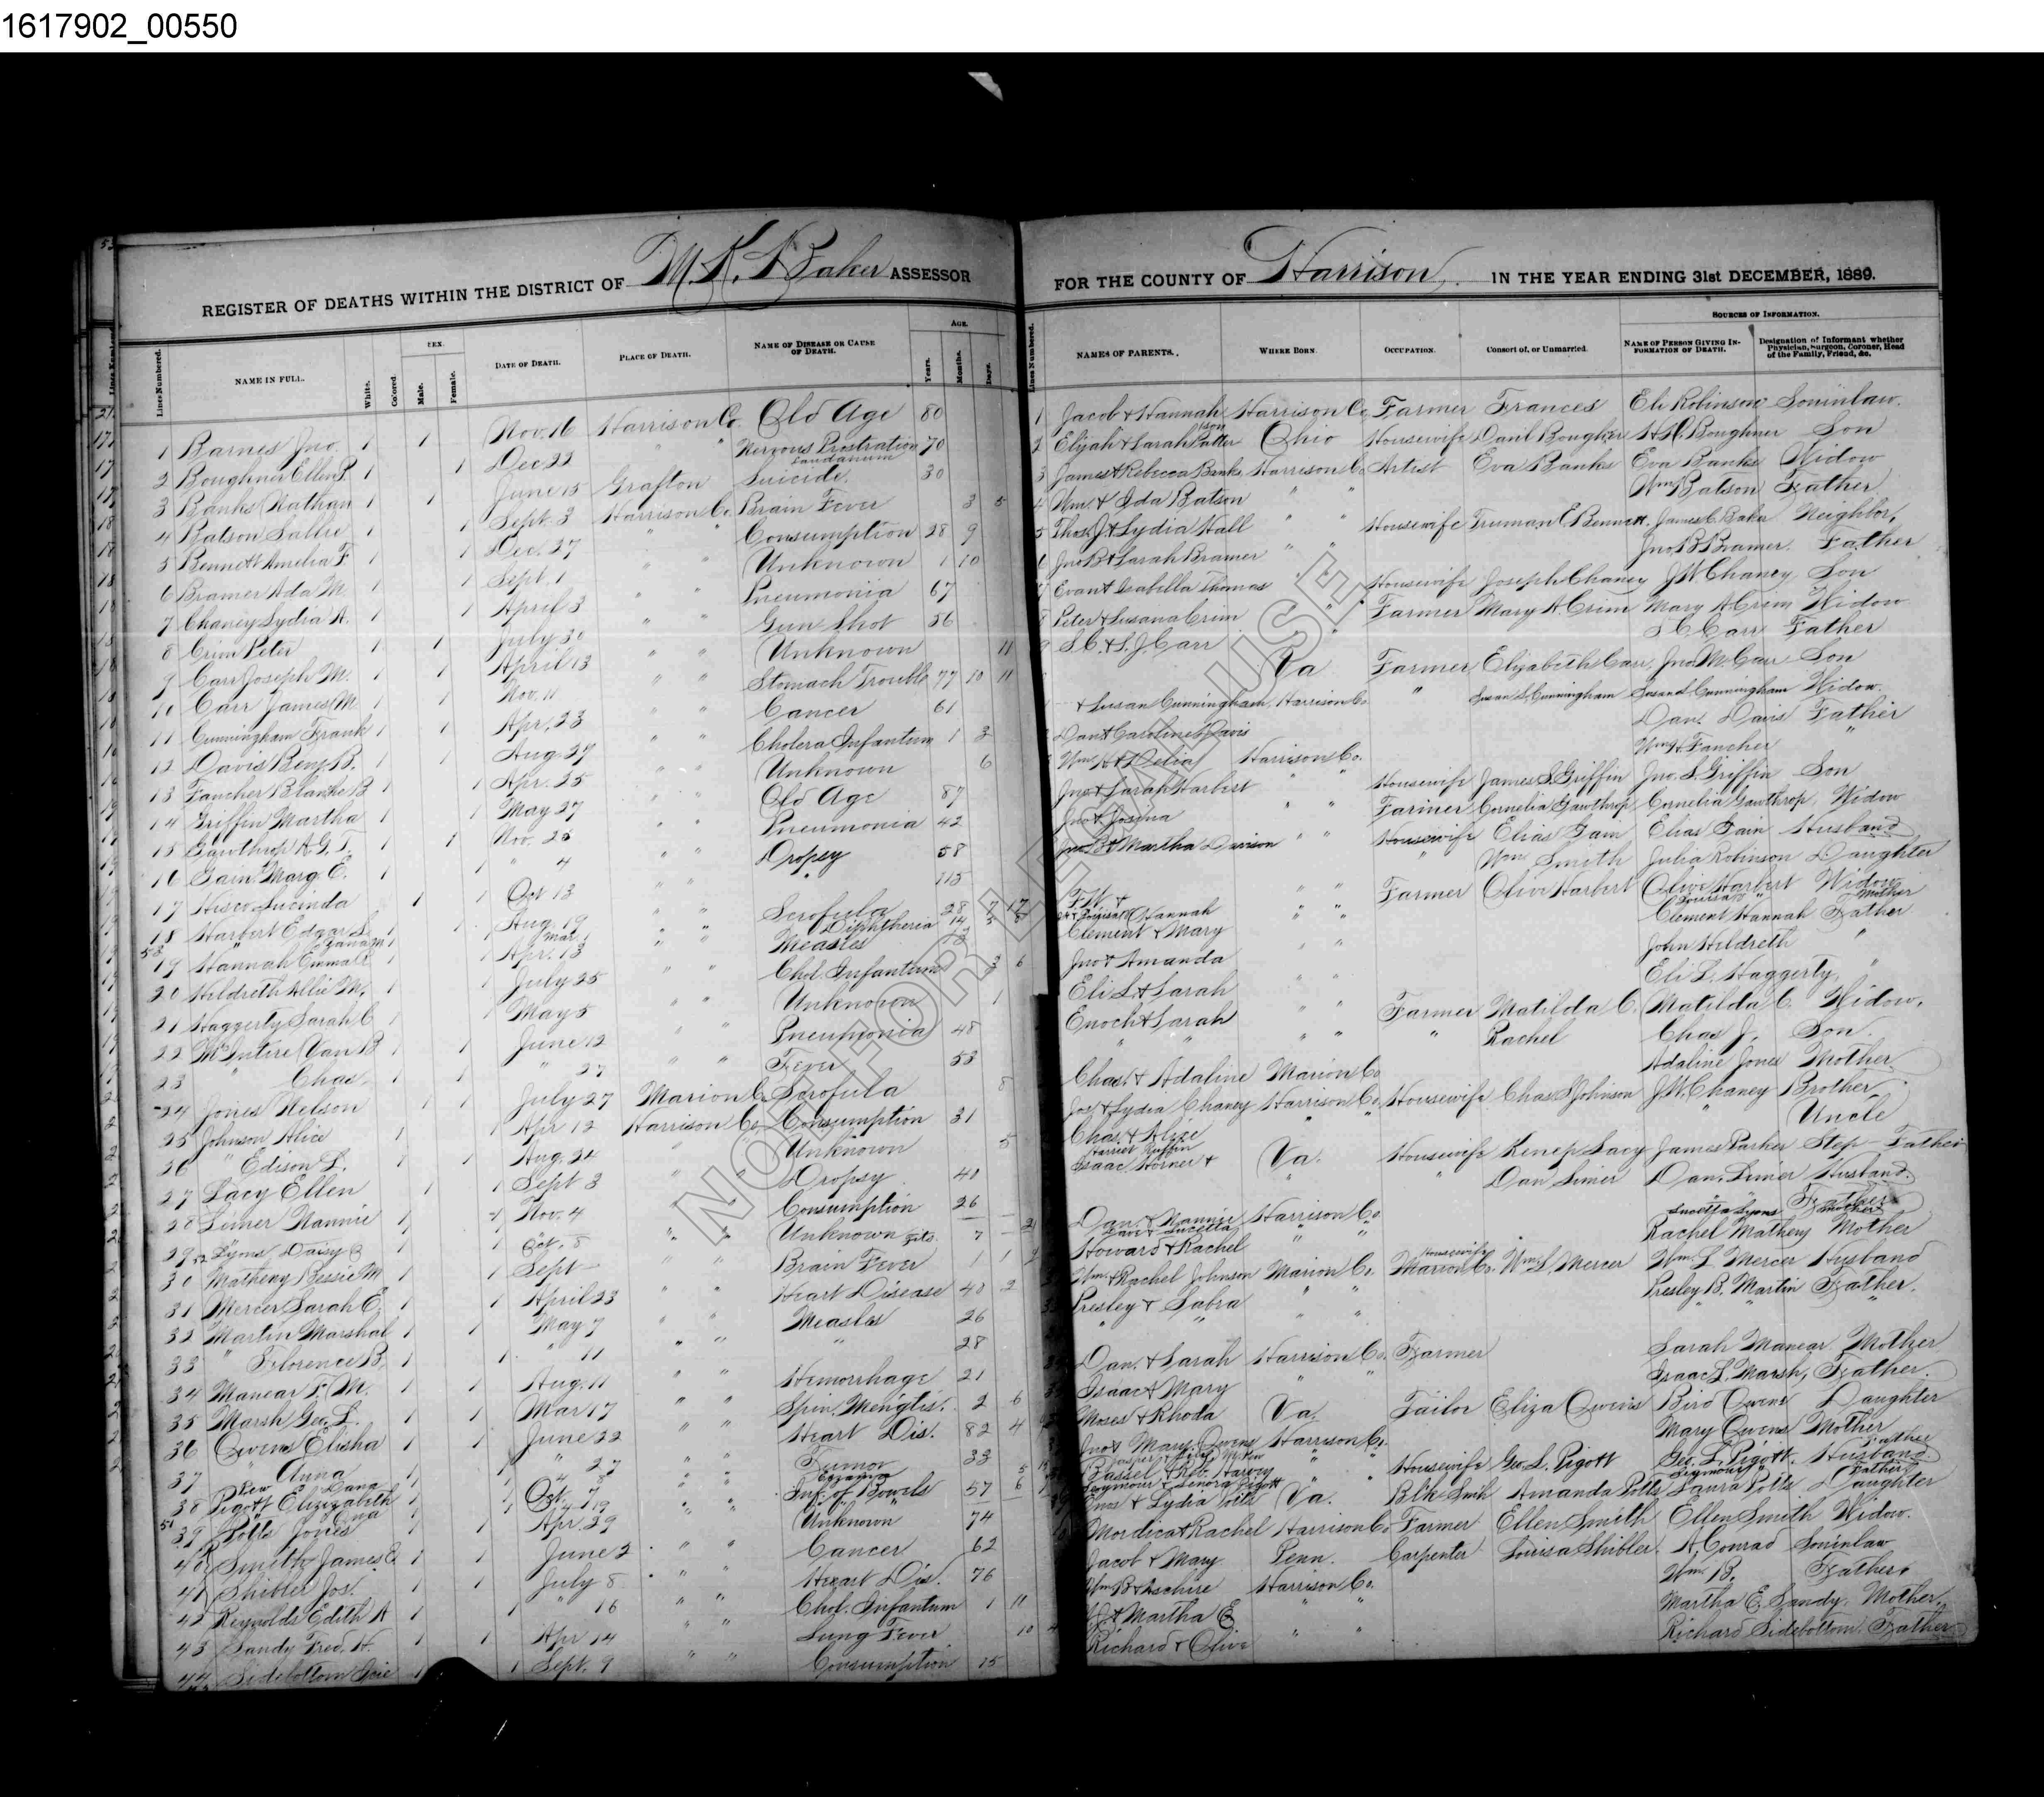 1617902_00550
REGISTER OF DEATHS WITHIN THE DISTRICT OF M. K. Baker ASSESSOR FOR THE COUNTY OF Harrison, IN THE YEAR ENDING 31st DECEMBER, 1889.
Lines Numbered. NAME IN FULL. Whites. Colored. SEX. Male. Female. DATE OF DEATH. PLACE OF DEATH. NAME OF DISEASE OR CAUSE OF DEATH. AGE. Years. Months. Days. Lines Numbered. NAMES OF PARENTS. WHERE BORN. OCCUPATION. Consort of, or Unmarried. SOURCES OF INFORMATION. NAME OF PERSON GIVING INFORMATION OF DEATH. Designation of Informant whether Physician, Surgeon, Coroner, Head of the Family, Friend, &c.
1 Barnes Jno. 1 1 Nov. 16 Harrison Co. Old Age 80 1 Jacob & Hannah Harrison Co. Farmer Frances Eli Robinson Soninlaw.
2 Boughner Ellen P. 1 1 Dec 22 " " Nervous Prostration 70 2 Elijah & Sarah Patterson Ohio Housewife Danl Boughner Boughner Son
3 Banks Nathan 1 1 June 15 Grafton Laudanum Suicide. 30 3 James & Rebecca Banks Harrison Co. Artist Eva Banks Eva Banks Widow
4 Batson Sallie 1 1 Sept. 3 Harrison Co. Brain Fever 3 5 4 Wm. & Ida Batson " " Wm Batson Father
5 Bennett Amelia F 1 1 Dec. 27 " " Consumption 28 9 5 Thos. J. & Lydia Hall " " Housewife Truman E Bennett. James C. Baker Neighbor,
6 Bramer Ada M. 1 1 Sept. 1 " " Unknown 1 10 6 Jno B & Sarah Bramer " " Jno B Bramer. Father
7 Chaney Lydia A. 1 1 April 3 " " Pneumonia 67 7 Evan & Isabella Thomas " Housewife Joseph Chaney J W Chaney Son
8 Crim Peter 1 1 July 30 " " Gun Shot 56 8 Peter & Susana Crim " " Farmer Mary A. Crim Mary A Crim Widow
9 Carr Joseph M. 1 1 April 13 " " Unknown 11 9 S. C. & S. J. Carr S C Carr Father
10 Carr James M 1 1 Nov. 11 " " Stomach Trouble 77 10 11 Va Farmer Elizabeth Carr. Jno. M. Carr Son
11 Cunningham Frank 1 1 Apr. 23 " " Cancer 61 & Susan Cunningham. Harrison Co " Susan S. Cunningham Susan S Cunningham Widow.
12 Davis Benj. B. 1 1 Aug 27 " " Cholera Infantum 1 3 Dan & Caroline Davis Dan. Davis Father
13 Fancher Blanche B 1 1 Apr. 25 " " Unknown 6 Wm A & Delia Harrison Co. Wm A Fancher "
14 Griffin Martha 1 1 May 27 " " Old Age 87 Jno & Sarah Harbert " " Housewife James S. Griffin Jno. S. Griffin Son
15 Gawthrop A. G. T. 1 1 Nov. 26 " " Pneumonia 42 Jno & Josina " " Farmer Cornelia Gawthrop Cornelia Gawthrop. Widow
16 Gain Marg. E. 1 1 " 4 " " Dropsy 58 Jno B & Martha Davison " " Housewife Elias Gain Elias Gain Husband
17 Hisco Lucinda 1 Oct 13 " " 115 " Wm Smith Julia Robinson Daughter
18 Harbert Edgar L. 1 Aug. 19 " " Scrofula 28 7 17 F. W. & " " Farmer Olive Harbert Olive Harbert Widow
19 Hannah Emma 1 1 Apr. 13 " " Measles Clement & Mary " " Clement Hannah Father
20 Hildreth Allie M. 1 1 July 25 " " Chol. Infantum 3 6 Jno & Amanda " " John Hildreth "
21 Haggerty Sarah C 1 1 May 5 " " Unknown 1 Eli L. & Sarah " " Eli L. Haggerty, "
22 McIntire Van B 1 1 June 12 " " Pneumonia 48 Enoch & Sarah " " Farmer Matilda C. Matilda C. Widow,
23 " Chas. 1 1 " 27 " " Fever 53 " " " " " Rachel Chas J. Son.
24 Jones Nelson 1 1 July 27 Marion Co. Scrofula 8 Chas. & Adaline Marion Co Adaline Jones Mother
25 Johnson Alice 1 1 Apr 12 Harrison Co. Consumption 31 Jos. & Lydia Chaney Harrison Co. Housewife Chas S Johnson J. W. Chaney Brother
26 " Edison L. 1 1 Aug. 24 " " Unknown 5 Chas. & Alice " " Uncle
27 Lacy Ellen 1 1 Sept 3 " " Dropsy 40 Isaac Horner & Harriet Ruffin Va. Housewife Lacy James Parker Step-Father
28 Limer Nannie 1 1 Nov. 4 " " Consumption 26 " " Dan Limer Dan. Limer Husband.
29 Lyons Daisy 1 1 Oct. 8 " " Unknown Fits. 7 21 Dan. & Nannie Harrison Co. Lucetta Lyons Father Mother
30 Matheny Bessie M 1 1 Sept " " Brain Fever 1 1 9 Howard & Rachel " " Rachel Matheny Mother
31 Mercer Sarah E. 1 1 April 23 " " Heart Disease 40 2 Wm. & Rachel Johnson Marion Co. Housewife Wm L. Mercer Wm. L Mercer Husband
32 Martin Marshal 1 1 May 7 " " Measles 26 Presley & Sabra " " Presley B. Martin Father.
33 " Florence B. 1 1 " 11 " " " 28 " " " " "
34 Manear F. M. 1 1 Aug. 11 " " Hemorrhage 21 Dan. & Sarah Harrison Co. Farmer Sarah Manear Mother
35 Marsh Geo. L. 1 1 Mar 17 " " Spin. Mengtis. 2 6 Isaac & Mary " " Isaac L. Marsh, Father.
36 Owens Elisha 1 1 June 22 " " Heart Dis. 82 4 Moses & Rhoda Va. Tailor Eliza Owens Bird Owens Daughter
37 " Anna 1 1 " 27 " " Tumor 33 Jno & Mary. Owens Harrison Co. Mary Owens Mother
38 Pigott Elizizabeth 1 1 Oct. 7 " " Inf. of Bowels 57 6 Bassel & Reb. Harvey " " Housewife Geo. L. Pigott Geo. L. Pigott. Husband
39 Potts Jones 1 1 Apr. 29 " " Unknown 74 Enos & Lydia Potts Va. Blk Smih Amanda Potts Laura Potts Daughter
40 Smith James E. 1 1 June 2 " " Cancer 62 Mordica & Rachel Harrison Co Farmer Ellen Smith Ellen Smith Widow.
41 Shibler Jos. 1 1 July 8 " " Heart Dis. 76 Jacob & Mary Penn. Carpenter Lourisa Shibler. A. Conrad Soninlaw
42 Reynolds Edith A 1 1 " 16 " " Chol. Infantum 1 11 Wm B & Harrison Co. Wm. B. Father
43 Sandy Fred. H. 1 1 Apr 14 " " Lung Fever 10 & Martha E " " Martha E Sandy. Mother.
44 Sidebottom 1 1 Sept. 9 " " Consumption 15 Richard & Olive " " Richard Sidebottom. Father
NOT FOR LEGAL USE